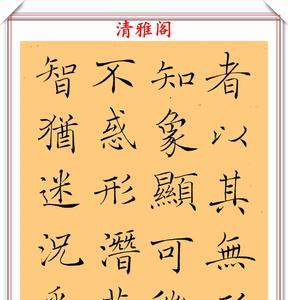 清雅阁
者以其無
知象顯可
不惑形潛
智猶迷況